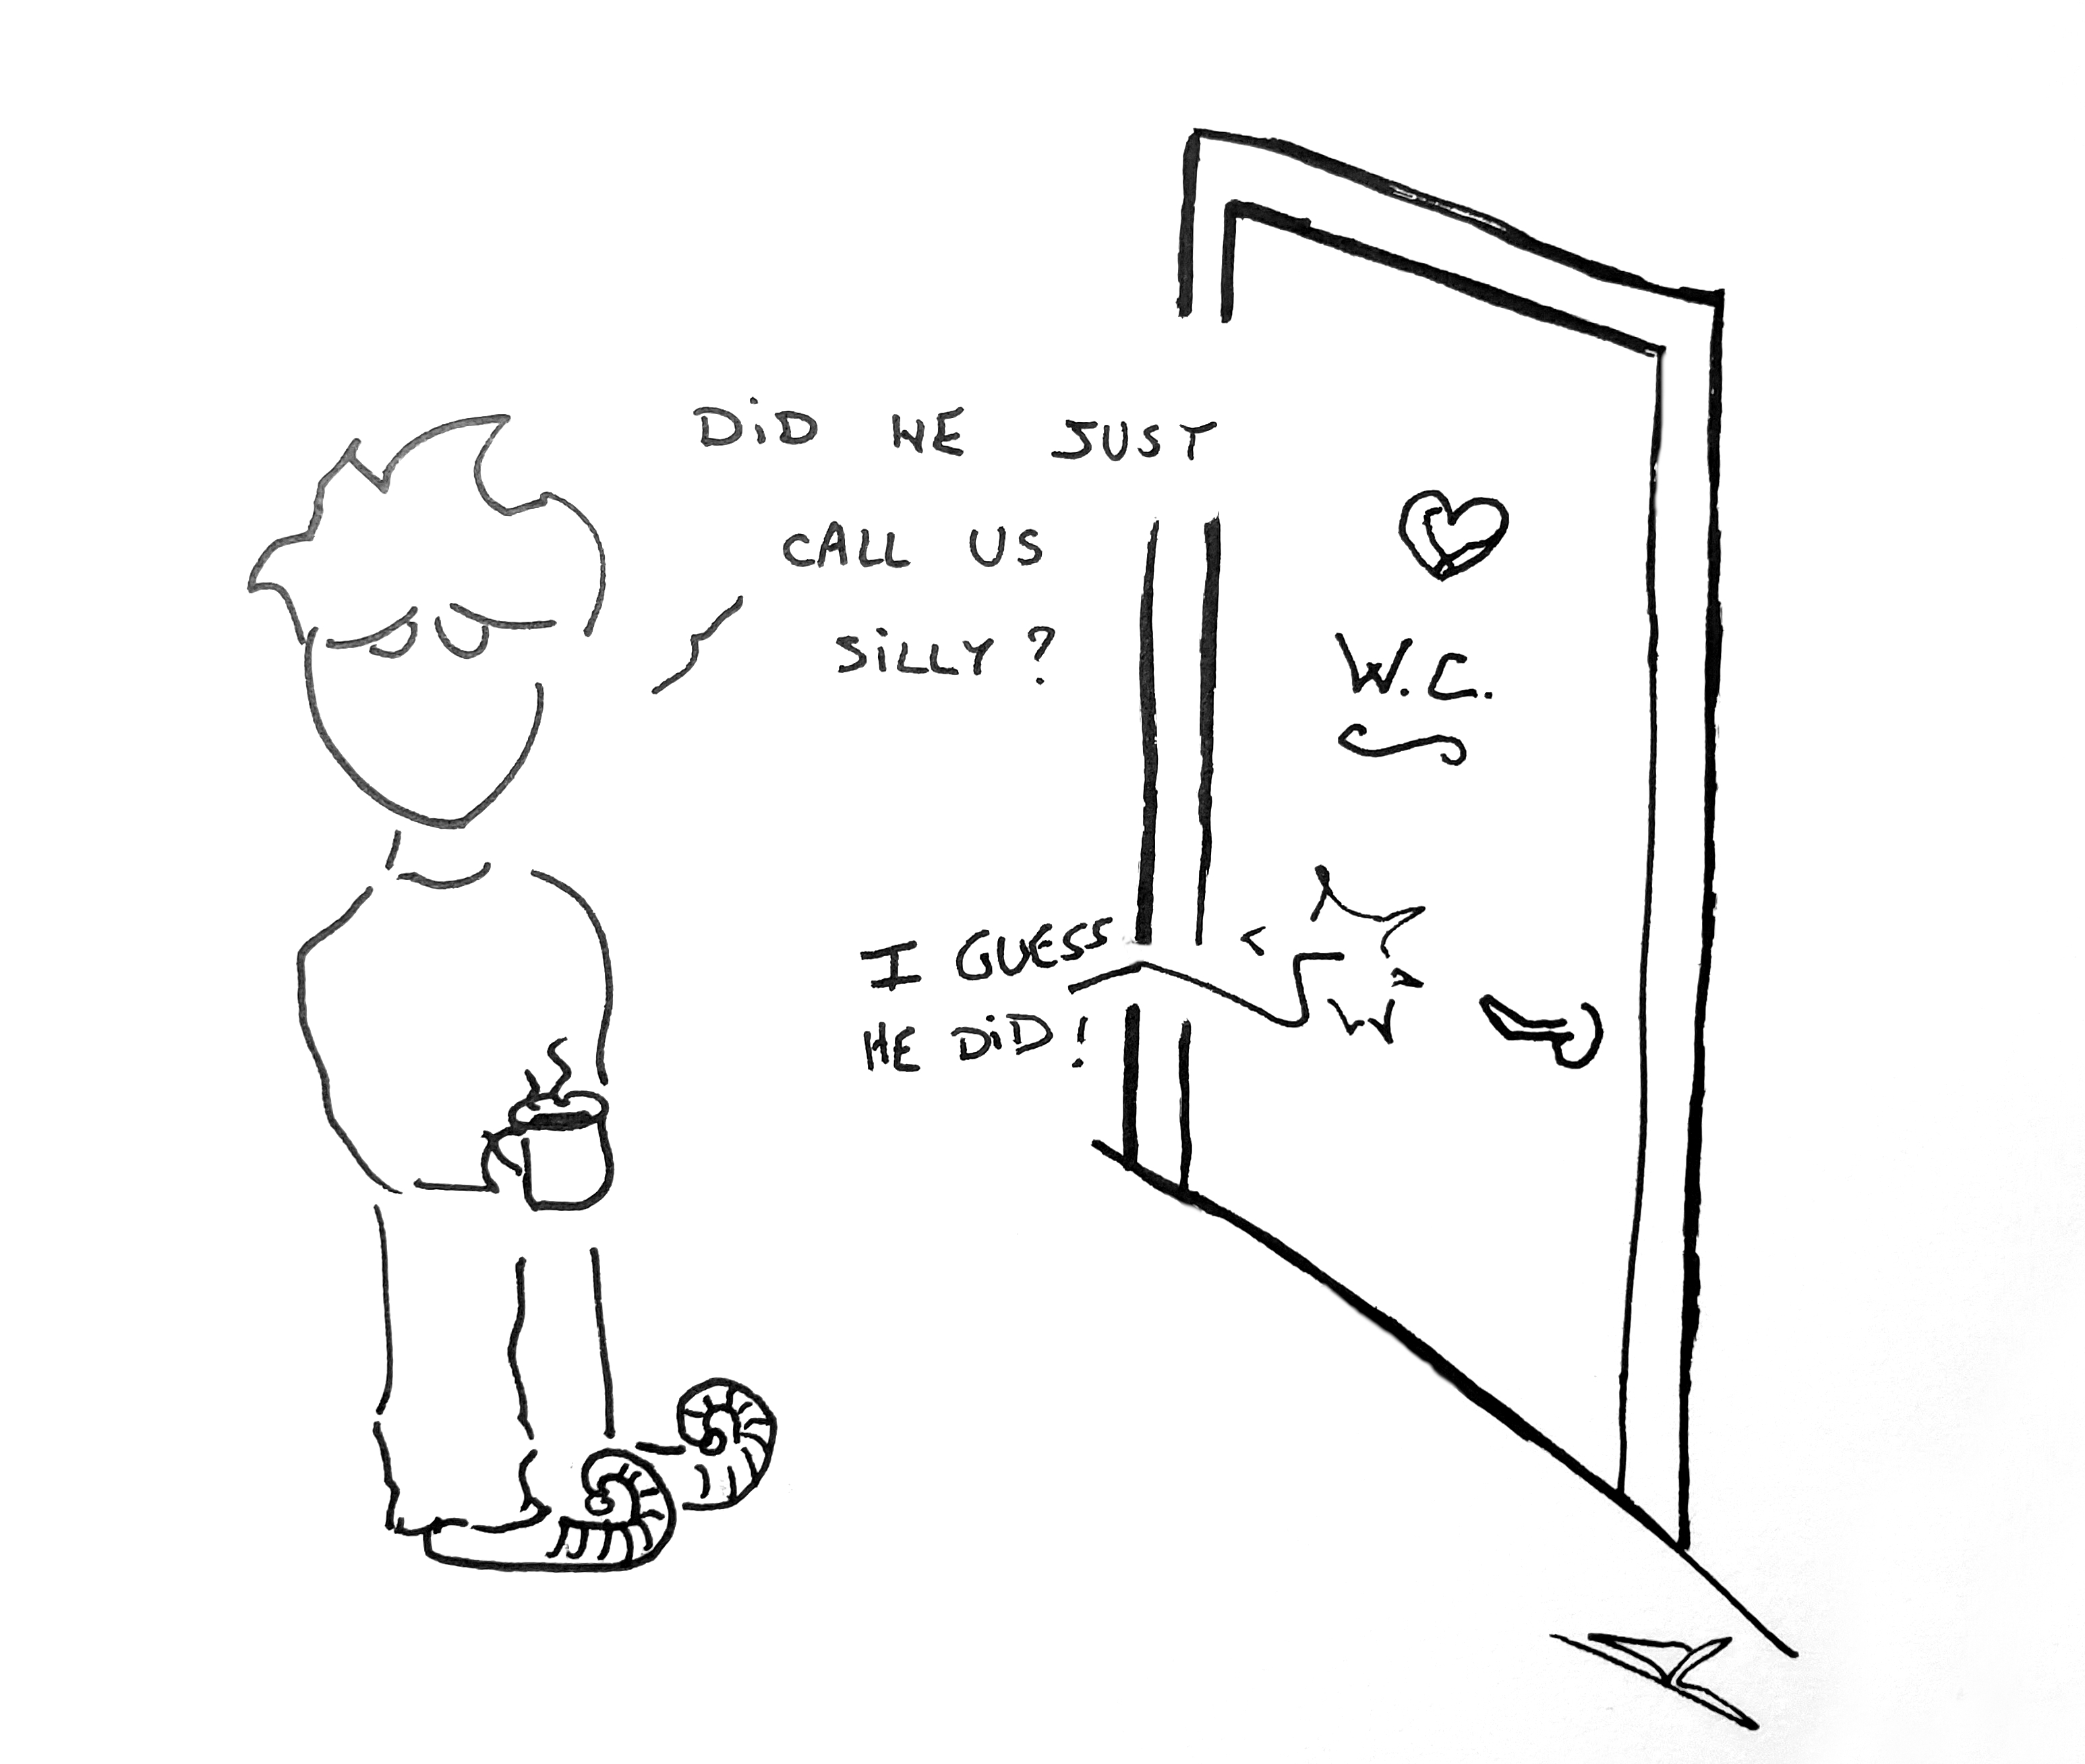 DiD HE JUST
CALL US
SiLLY?
W.C.
I GUESS
HE DiD!